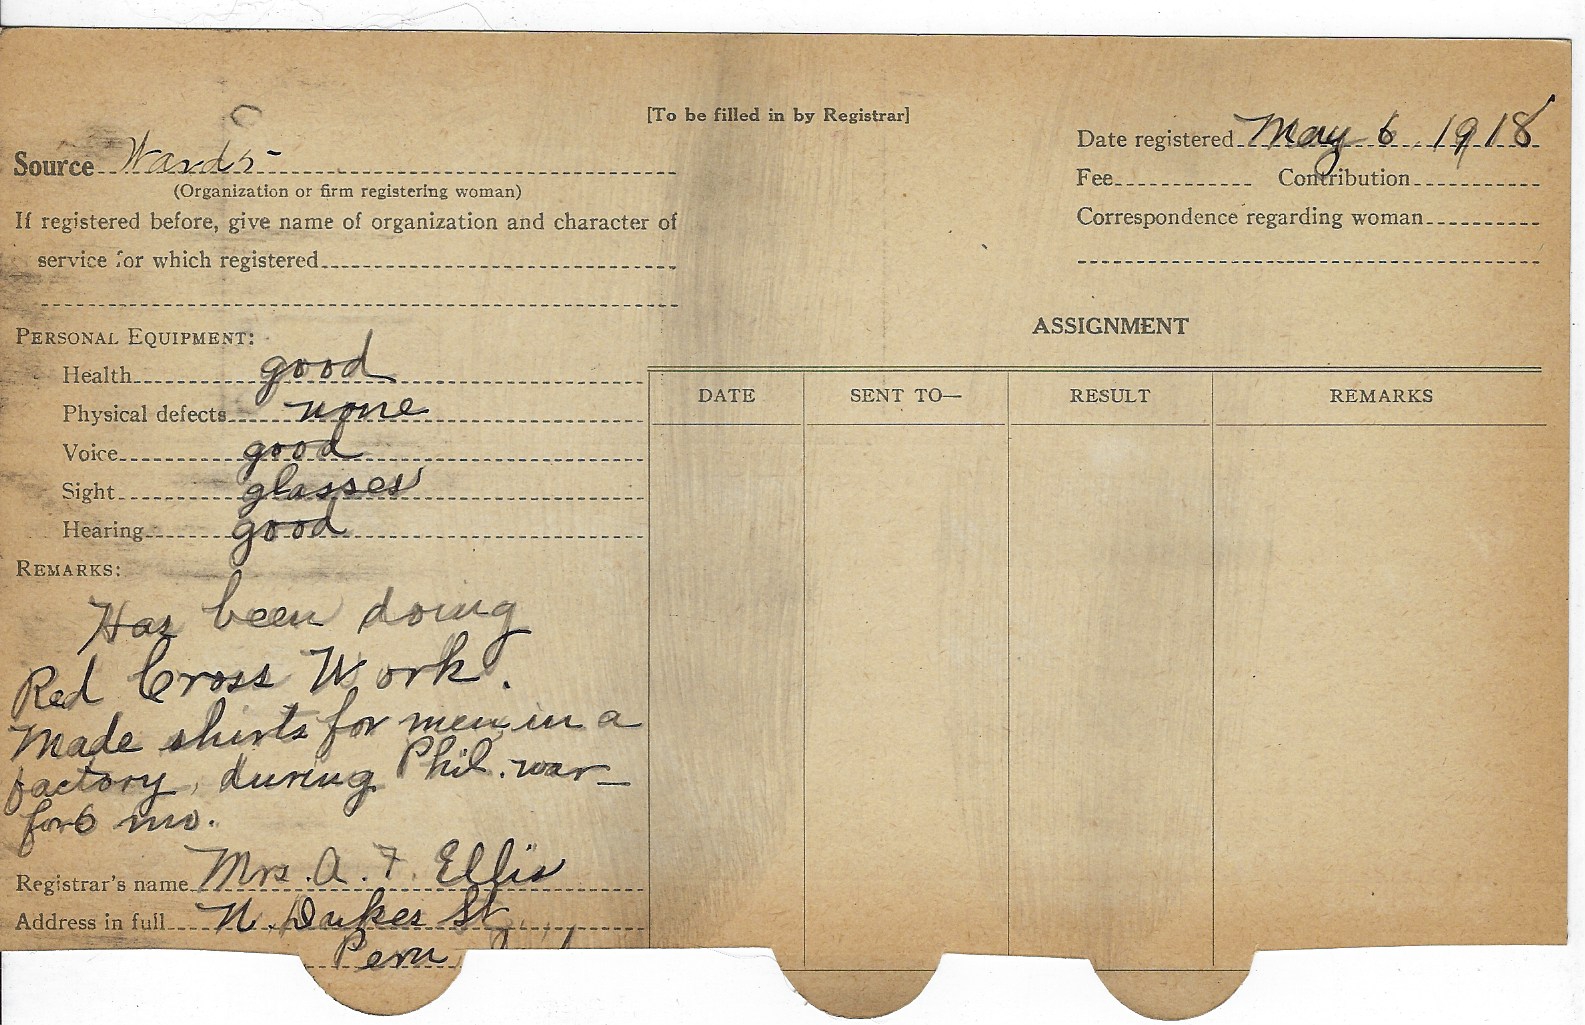 [To be filled in by Registrar]
Source Wards-
(Organization or firm registering woman)
If registered before, give name of organization and character of
service for which registered
Date registered May 6 1918
Fee Contribution
Correspondence regarding woman
PERSONAL EQUIPMENT:
Health good
Physical defects none
Voice good
Sight glasses
Hearing good
REMARKS:
Has been doing
Red Cross Work.
Made shirts for men in a
factory, during Phil. war_
for 6 mo.
Registrar's name Mrs. A. F. Ellis
Address in full N. Dukes St.
Peru
ASSIGNMENT
DATE SENT TO— RESULT REMARKS